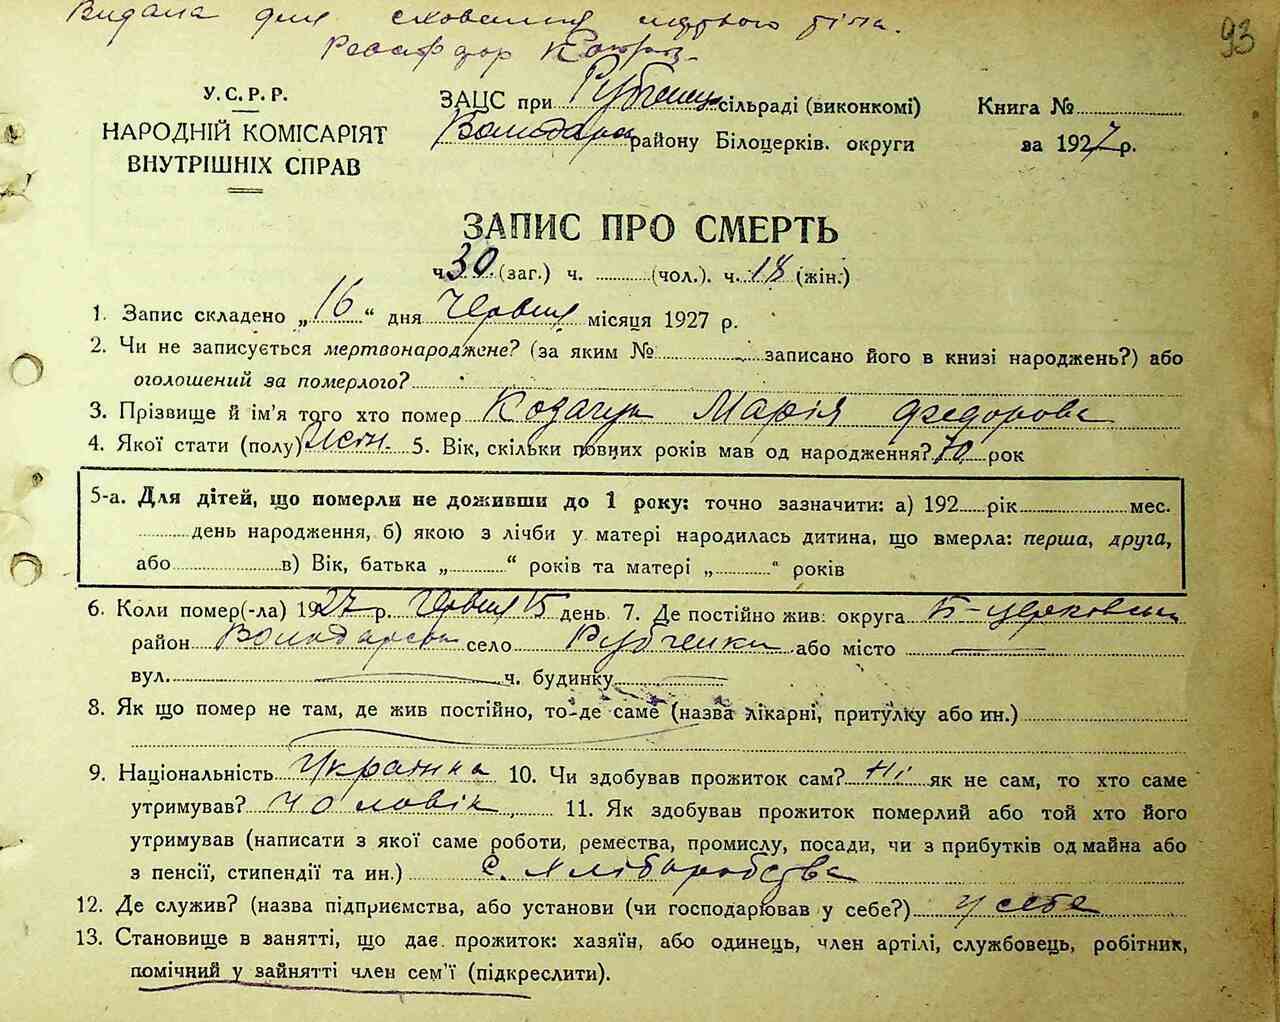 Видана для сховання мертвого тіла.
93
У.С.Р.Р.
НАРОДНІЙ КОМІСАРІЯТ
ВНУТРІШНІХ СПРАВ
ЗАЦС при Рубченец. сільраді (виконкомі)
Володарк району Білоцерків. округи
Книга №
за 1927 р.
ЗАПИС ПРО СМЕРТЬ
ч. 30 (заг.) ч. (чол.). ч. 18 (жін.)
1. Запис складено „16“ дня Червня місяця 1927 р.
2. Чи не записується мертвонароджене? (за яким № записано його в книзі народжень?) або
оголошений за померлого?
3. Прізвище й ім'я того хто помер Козачук Марія Федорова
4. Якої стати (полу) Жін. 5. Вік, скільки повних років мав од народження? 70 рок
5-а. Для дітей, що померли не доживши до 1 року: точно зазначити: а) 192 рік мес.
день народження, б) якою з лічби у матері народилась дитина, що вмерла: перша, друга,
або в) Вік, батька „ “ років та матері „ “ років
6. Коли помер(-ла) 1927 р. Червня 15 день. 7. Де постійно жив: округа Б-церковськ
район Володарськ село Рубченки або місто —
вул. — ч. будинку —
8. Як що помер не там, де жив постійно, то-де саме (назва лікарні, притулку або ин.)
9. Національність Українка 10. Чи здобував прожиток сам? Ні як не сам, то хто саме
утримував? чоловік 11. Як здобував прожиток померлий або той хто його
утримував (написати з якої саме роботи, ремества, промислу, посади, чи з прибутків од майна або
з пенсії, стипендії та ин.) с. Хліборобства
12. Де служив? (назва підприємства, або установи (чи господарював у себе?) у себе
13. Становище в занятті, що дає прожиток: хазяїн, або одинець, член артілі, службовець, робітник,
помічний у зайнятті член сем'ї (підкреслити).